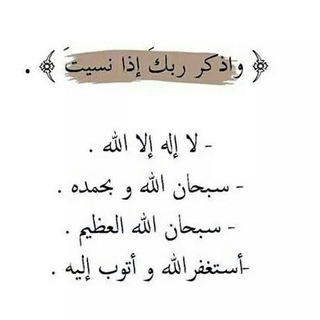 ﴿ واذكر ربكَ إذا نسيتَ ﴾ .
- لا إله إلا الله .
- سبحان الله و بحمده .
- سبحان الله العظيم .
-أستغفرالله و أتوب إليه .